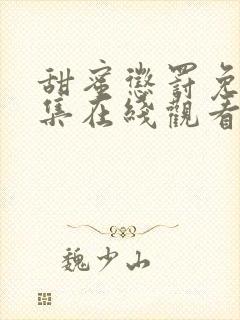 甜蜜懲罰免
集在綫觀看
魏少山